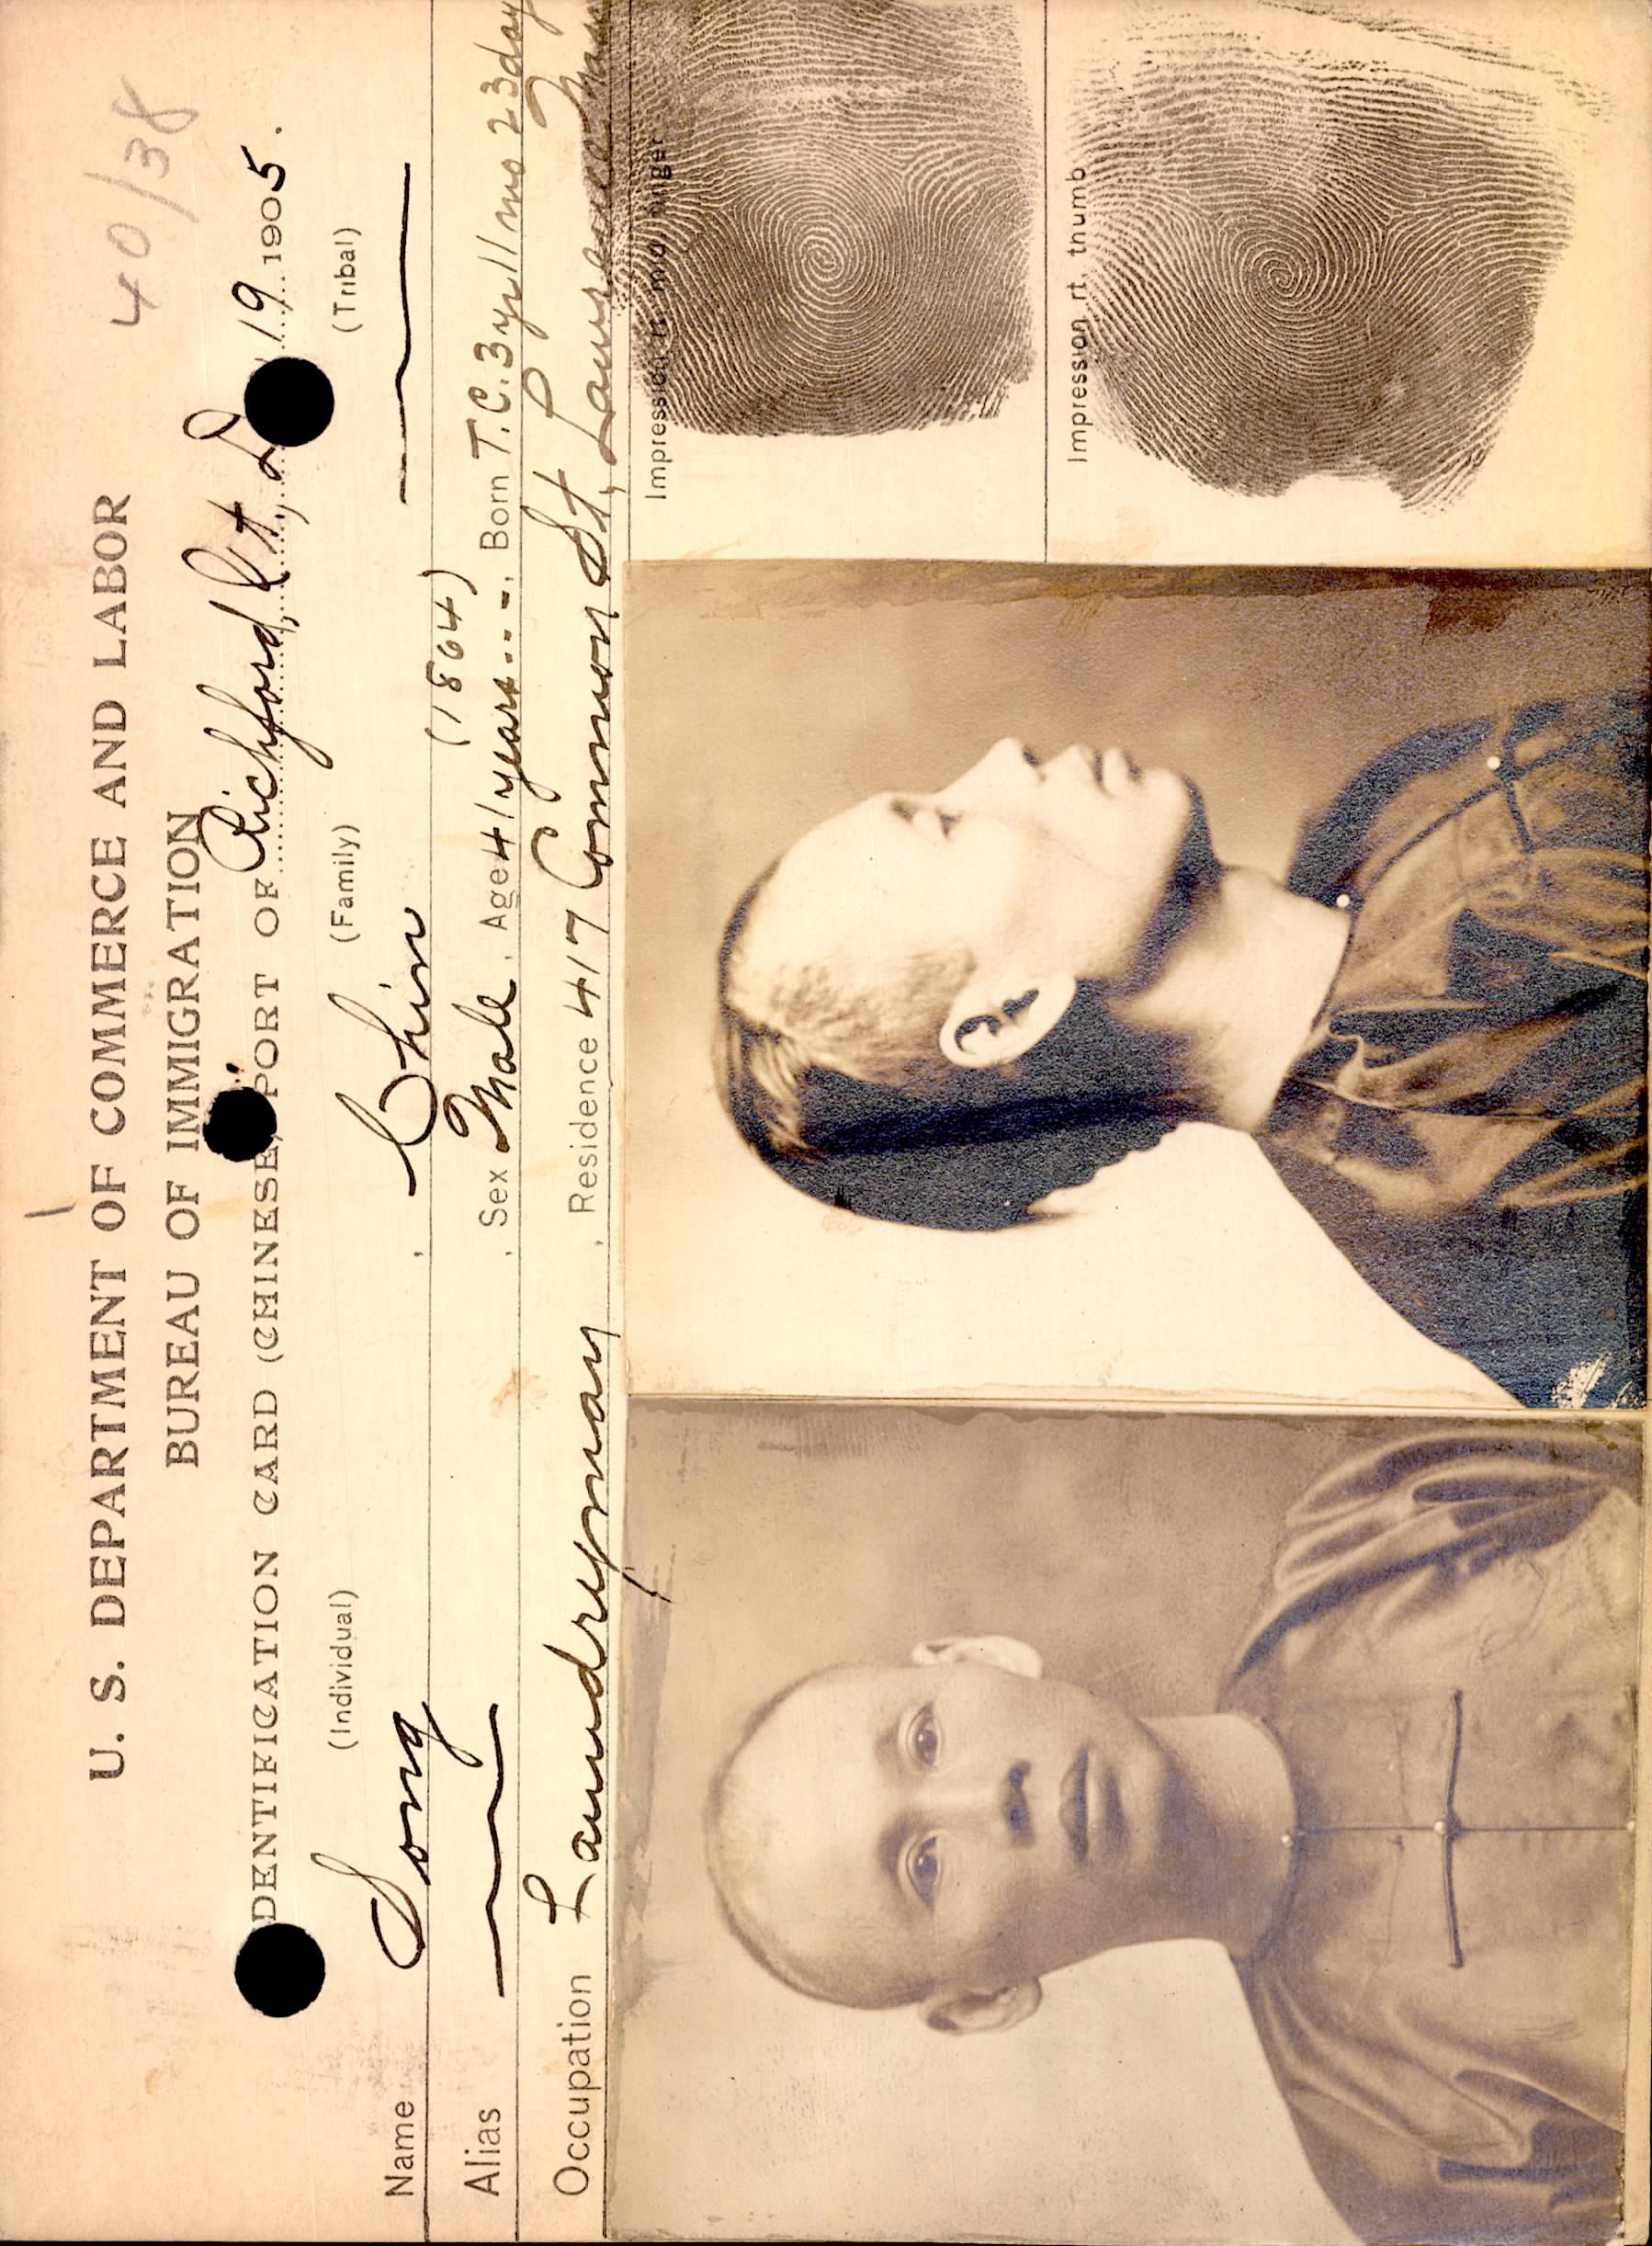 40/38
U. S. DEPARTMENT OF COMMERCE AND LABOR
BUREAU OF IMMIGRATION
DENTIFICATION CARD (CHINESE, PORT OF Richford, Vt., 19 1905.
(Individual) (Family) (Tribal)
Name Song , Chin
(1864)
Alias , Sex Male , Age 41 years , Born T.C. 3 yr 11 mo 23 day
Occupation Laundryman , Residence 417 Common St, Lawrence Mass
Impression rt. thumb